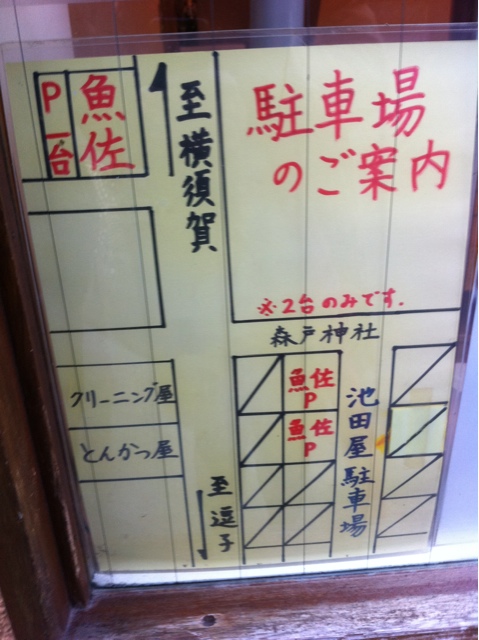 駐車場
のご案内
※2台のみです.
P一台
魚佐
至横須賀
森戸神社
魚佐
P
魚佐
P
池田屋駐車場
クリーニング屋
とんかつ屋
至逗子